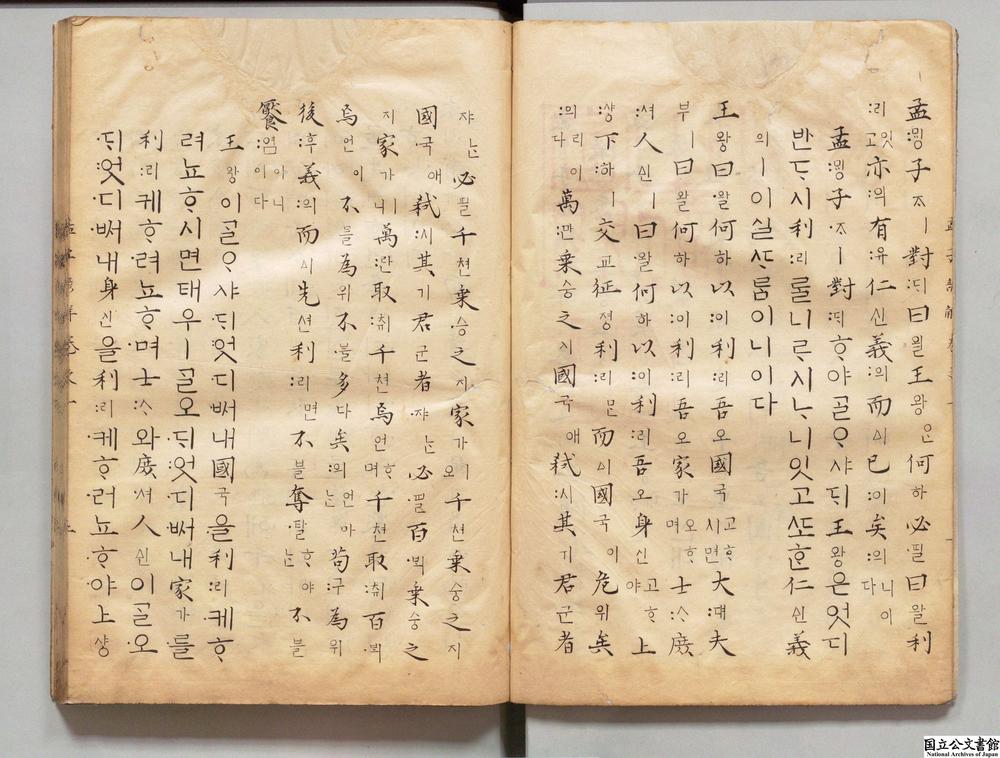 孟ᄆᆡᆼ子ᄌᆞㅣ對ᄃᆡ曰왈王왕은何하必필曰왈利
리잇고亦의有유仁신義의而ᅀᅵ已이矣의니이다
孟ᄆᆡᆼ子ᄌᆞㅣ對ᄃᆡᄒᆞ야ᄀᆞᆯᄋᆞ샤ᄃᆡ王왕은엇디
반ᄃᆞ시利리ᄅᆞᆯ니ᄅᆞ시ᄂᆞ니잇고ᄯᅩᄒᆞᆫ仁신義
의ㅣ이실ᄯᆞᄅᆞᆷ이니이다
王왕曰왈何하以이利리吾오國국고ᄒᆞ시면大대夫
부ㅣ曰왈何하以이利리吾오家가오ᄒᆞ며士ᄉᆞ庶
셔人신ㅣ曰왈何하以이利리吾오身신고ᄒᆞ야上
샹下하ㅣ交교征졍利리면而ᅀᅵ國국이危위矣
의리이다萬만乘승之지國국애弑시其기君군者
쟈ᄂᆞᆫ必필千쳔乘승之지家가ㅣ오千쳔乘승之지
國국애弑시其기君군者쟈ᄂᆞᆫ必필百ᄇᆡᆨ乘승之
지家가ㅣ니萬만取츄千쳔焉언ᄒᆞ며千쳔取츄百ᄇᆡᆨ
焉언이不블為위不블多다矣의언마ᄂᆞᆫ苟구為위
後후義의而ᅀᅵ先션利리면不블奪탈ᄒᆞ야ᄂᆞᆫ不블
饜염이니이다
王왕이ᄀᆞᆯᄋᆞ샤ᄃᆡ엇디ᄡᅥ내國국을利리케ᄒᆞ
려뇨ᄒᆞ시면태우ㅣᄀᆞᆯ오ᄃᆡ엇디ᄡᅥ내家가를
利리케ᄒᆞ려뇨ᄒᆞ며士ᄉᆞ와庶셔人신이ᄀᆞᆯ오
ᄃᆡ엇디ᄡᅥ내身신을利리케ᄒᆞ려뇨ᄒᆞ야上샹
国立公文書館
National Archives of Japan